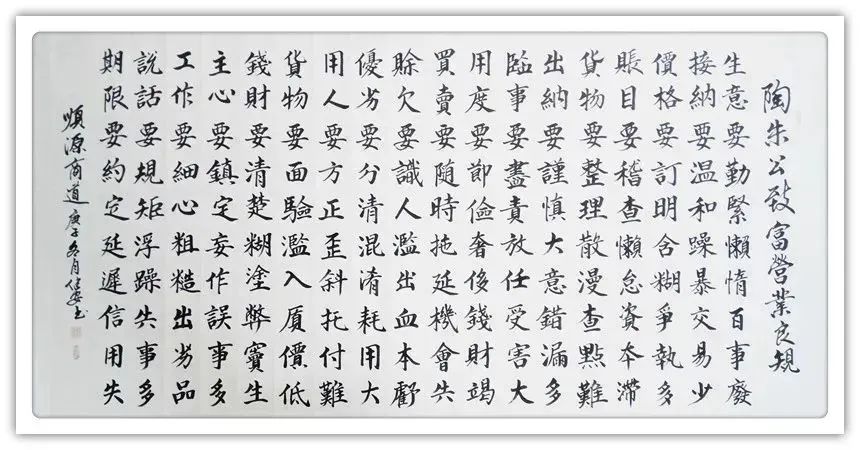 陶朱公致富營業良規
生意要勤緊懶惰百事廢
接納要温和躁暴交易少
價格要訂明含糊爭執多
賬目要稽查懶怠資本滯
貨物要整理散漫查點難
出納要謹慎大意錯漏多
臨事要盡責放任受害大
用度要節儉奢侈錢財竭
買賣要隨時拖延機會失
賒欠要識人濫出血本虧
優劣要分清混淆耗用大
用人要方正歪斜托付難
貨物要面驗濫入廈價低
錢財要清楚糊塗弊竇生
主心要鎮定妄作誤事多
工作要細心粗糙出劣品
說話要規矩浮躁失事多
期限要約定延遲信用失
順源商道庚子冬月